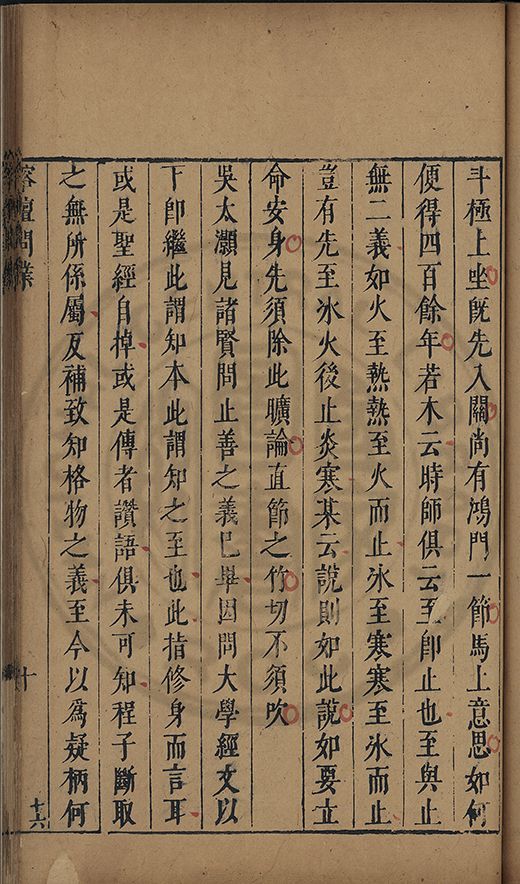 斗極上坐旣先入關尚有鴻門一節馬上意思如何
便得四百餘年若木云時師俱云至卽止也至與止
無二義如火至熱熱至火而止氷至寒寒至氷而止
豈有先至氷火後止炎寒某云說則如此說如要立
命安身先須除此曠論直節之竹切不須吹
吳太灝見諸賢問止善之義已畢因問大學經文以
下卽繼此謂知本此謂知之至也此指修身而言耳
或是聖經自掉或是傳者讚語俱未可知程子斷取
之無所係屬反補致知格物之義至今以爲疑柄何
榕壇問業
十
十六